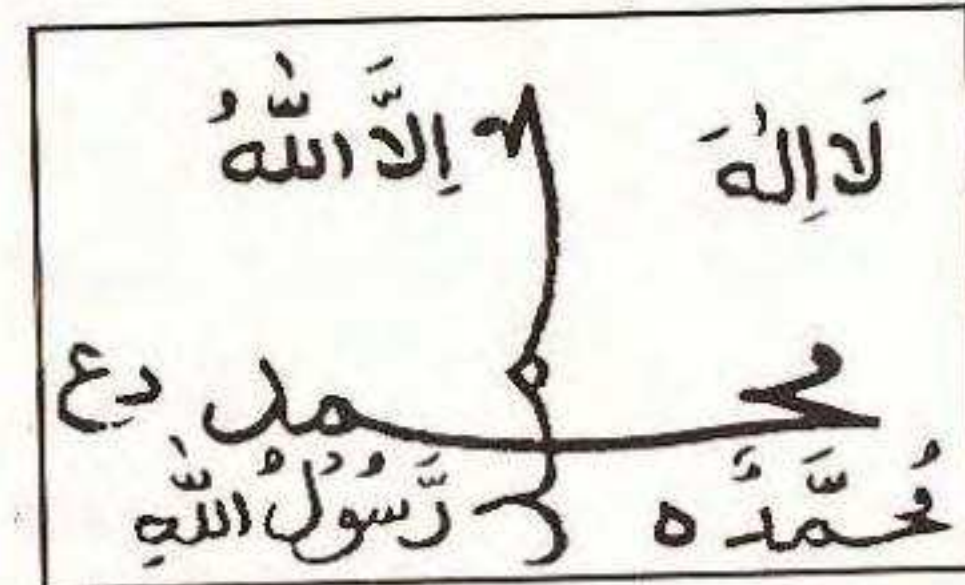 لَا اِلٰهَ اِلَّا اللّٰهُ
محمد
مُحَمَّدٌ رَّسُوْلُ اللّٰهِ